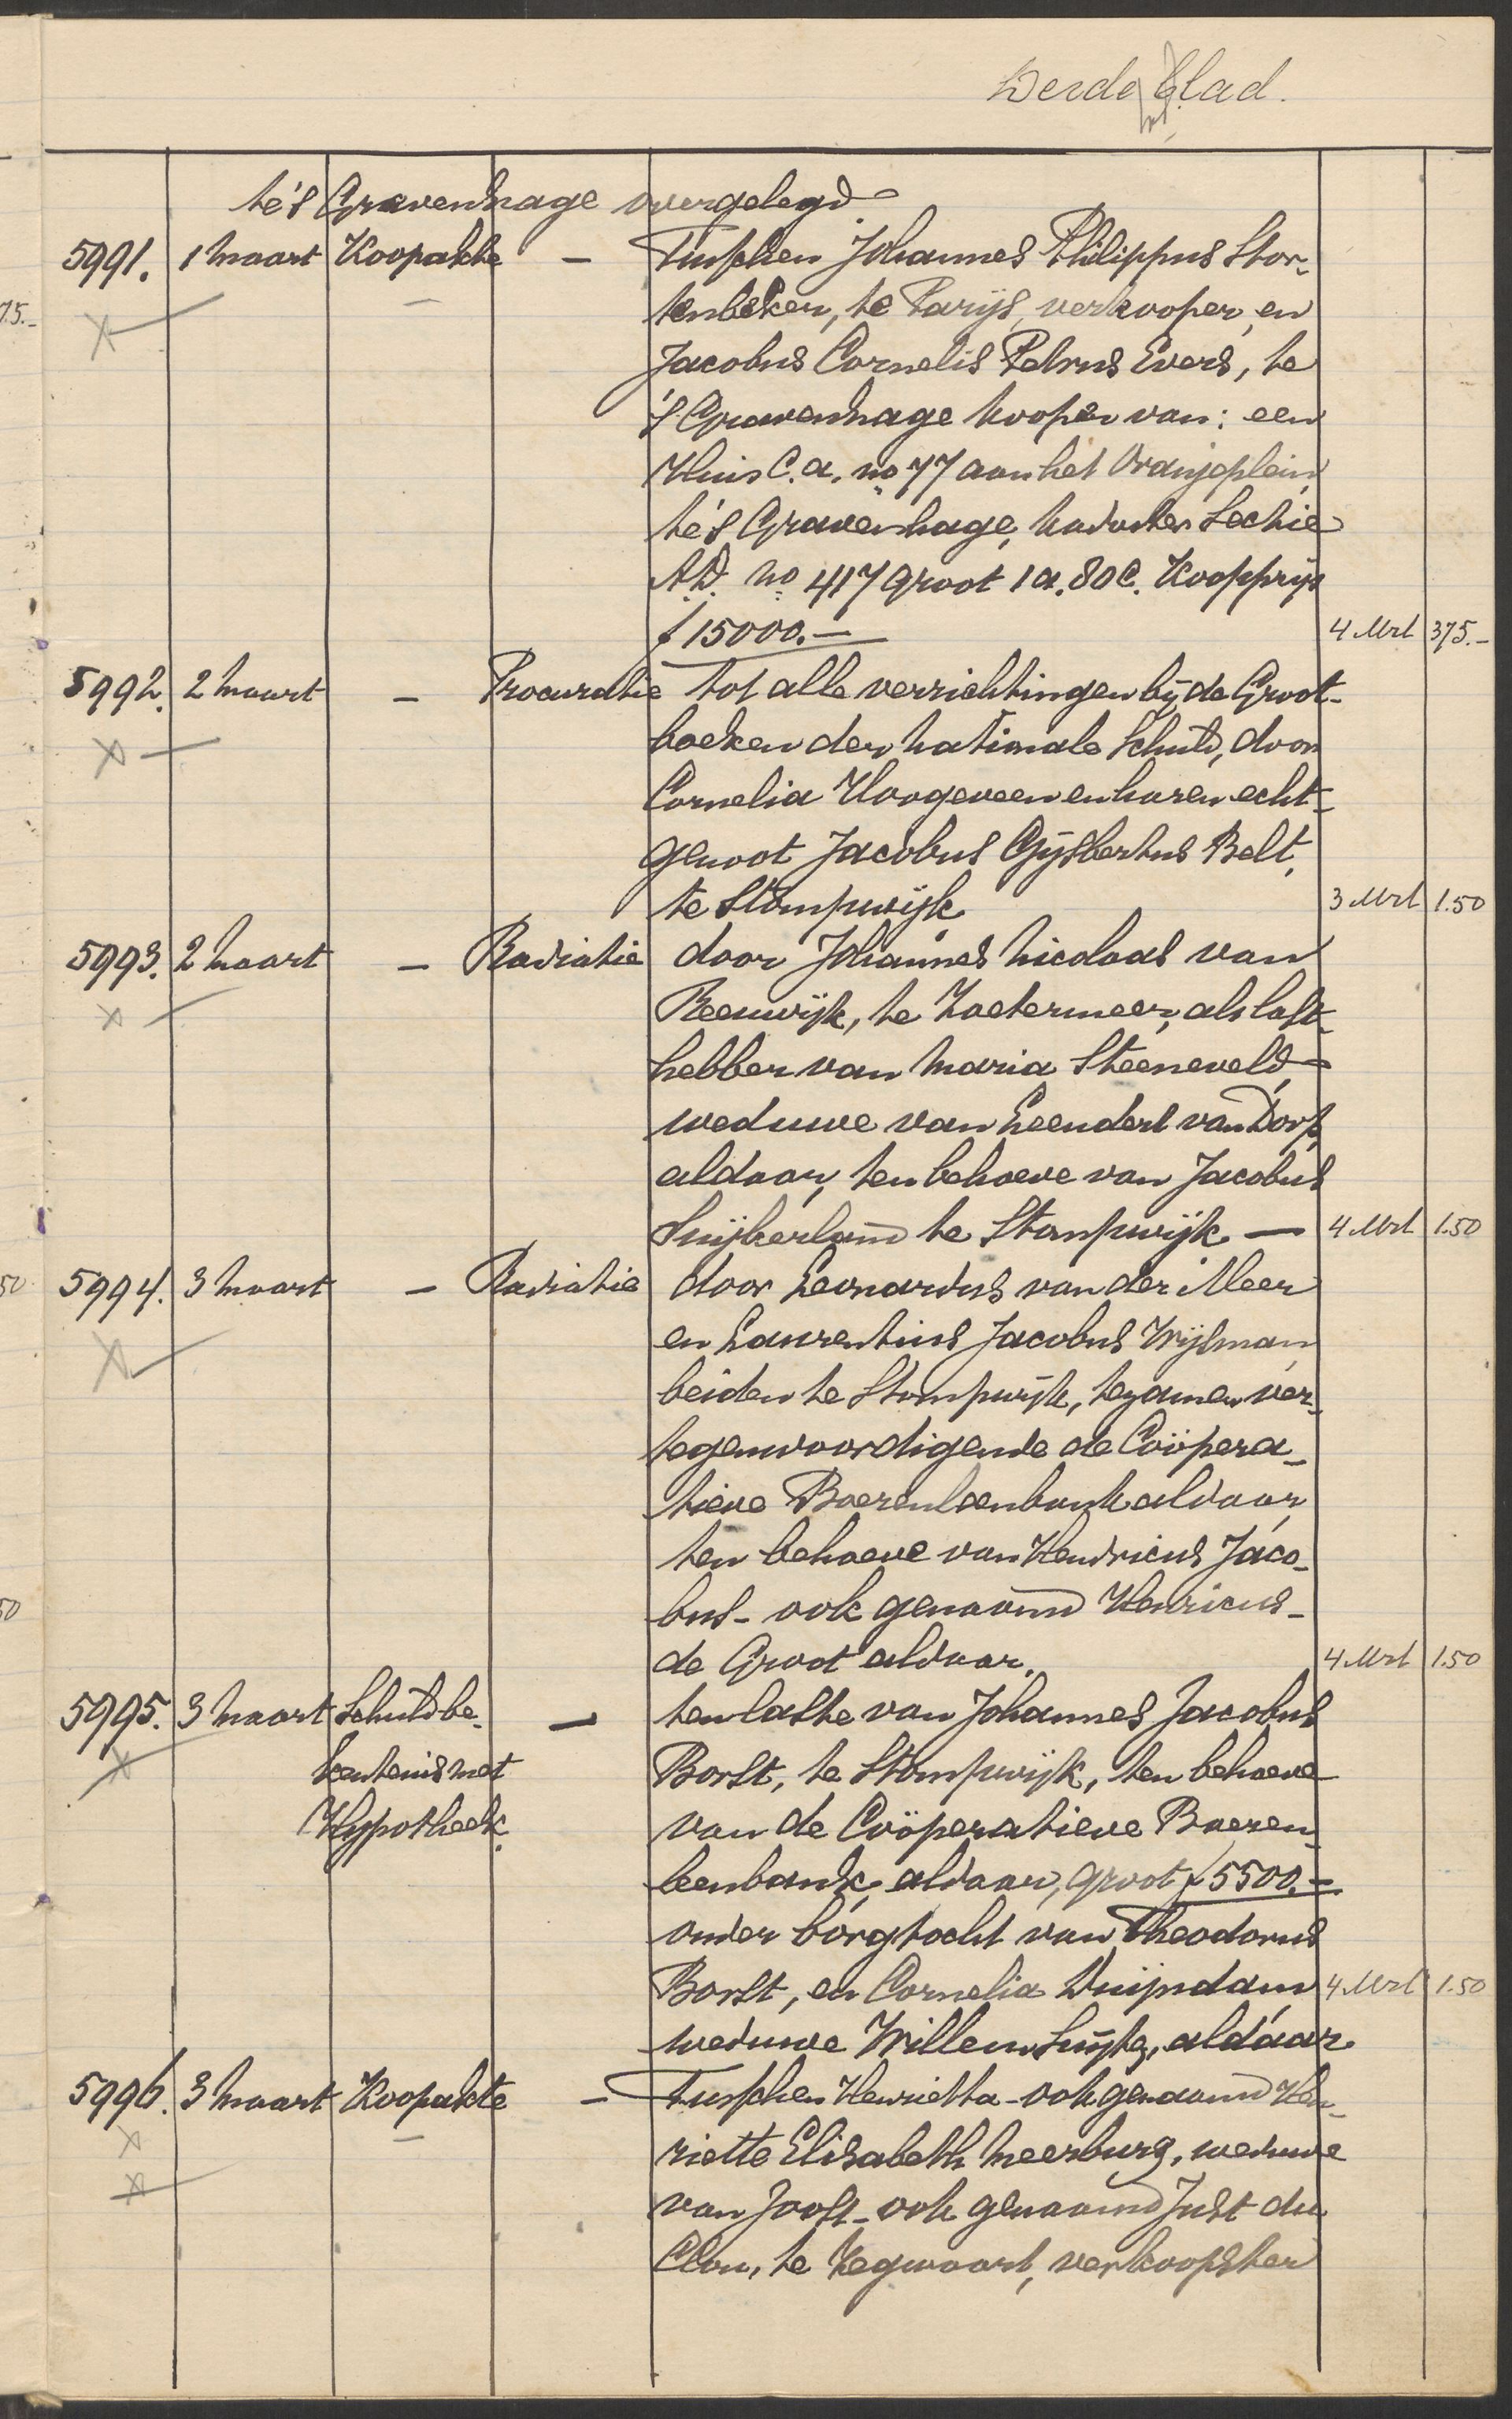 Derde blad.
te 's Gravenhage overgelegd
5991. 1 Maart Koopakte - Tusschen Johannes Philippus Stor-
tenbeker, te Parijs, verkooper, en
Jacobus Cornelis Petrus Evers, te
's Gravenhage kooper van: een
Huis c.a. no 77 aan het Oranjeplein
te 's Gravenhage, kadaster Sectie
A.D. no 417 groot 1 a. 80 c. Koopprijs
f 15000.- 4 Mrt 375.-
5992. 2 Maart - Procuratie tot alle verrichtingen bij de Groot-
boeken der Nationale Schuld, door
Cornelia Hoogeveen en haren echt-
genoot Jacobus Gijsbertus Belt,
te Stompwijk 3 Mrt 1.50
5993. 2 Maart - Radiatie door Johannes Nicolaas van
Reeuwijk, te Zoetermeer, als last-
hebber van Maria Steeneveld,
weduwe van Leendert van Dorp,
aldaar, ten behoeve van Jacobus
Suijkerland te Stompwijk - 4 Mrt 1.50
5994. 3 Maart - Radiatie door Leonardus van der Meer
en Laurentius Jacobus Wijsman
beiden te Stompwijk, tezamen ver-
tegenwoordigende de Coöpera-
tieve Boerenleenbank aldaar,
ten behoeve van Hendricus Jaco-
bus - ook genaamd Henricus -
de Groot aldaar. 4 Mrt 1.50
5995. 3 Maart Schuldbe- - ten laste van Johannes Jacobus
kentenis met Borst, te Stompwijk, ten behoeve
Hypotheek. van de Coöperatieve Boeren-
leenbank, aldaar, groot f 5500.-
onder borgtocht van Theodorus
Borst, en Cornelia Duijndam 4 Mrt 1.50
weduwe Willem Luijk, aldaar
5996. 3 Maart Koopakte - Tusschen Henrietta - ook genaamd Hen-
riette Elisabeth Meerburg, weduwe
van Joost - ook genaamd Just du
Clou, te Zegwaart, verkoopster
75.-
50
50